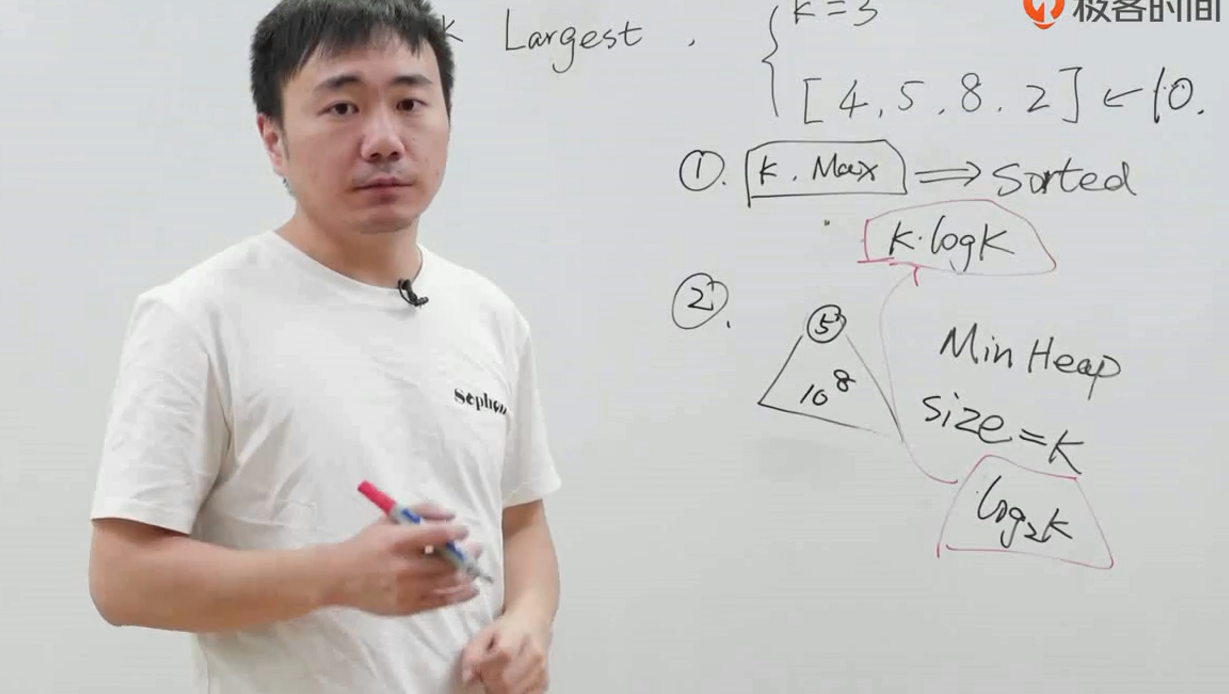 k Largest .
k = 3
[ 4, 5, 8. 2 ] ← 10.
极客时间
①. k. Max ⇒ Sorted
k·logk
②.
5
10 8
Min Heap
size = k
log₂k
Sephora